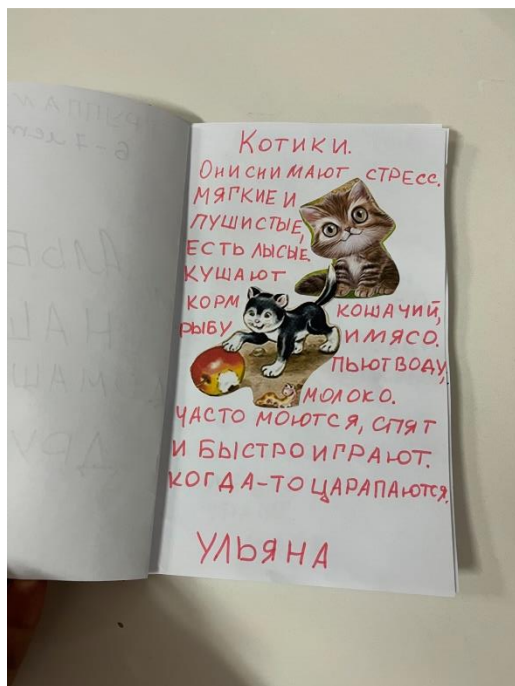 Котики.
Они снимают стресс.
мягкие и
пушистые,
есть лысые,
кушают
корм кошачий,
рыбу и мясо.
пьют воду,
молоко.
часто моются, спят
и быстро играют.
когда-то царапаются.
Ульяна